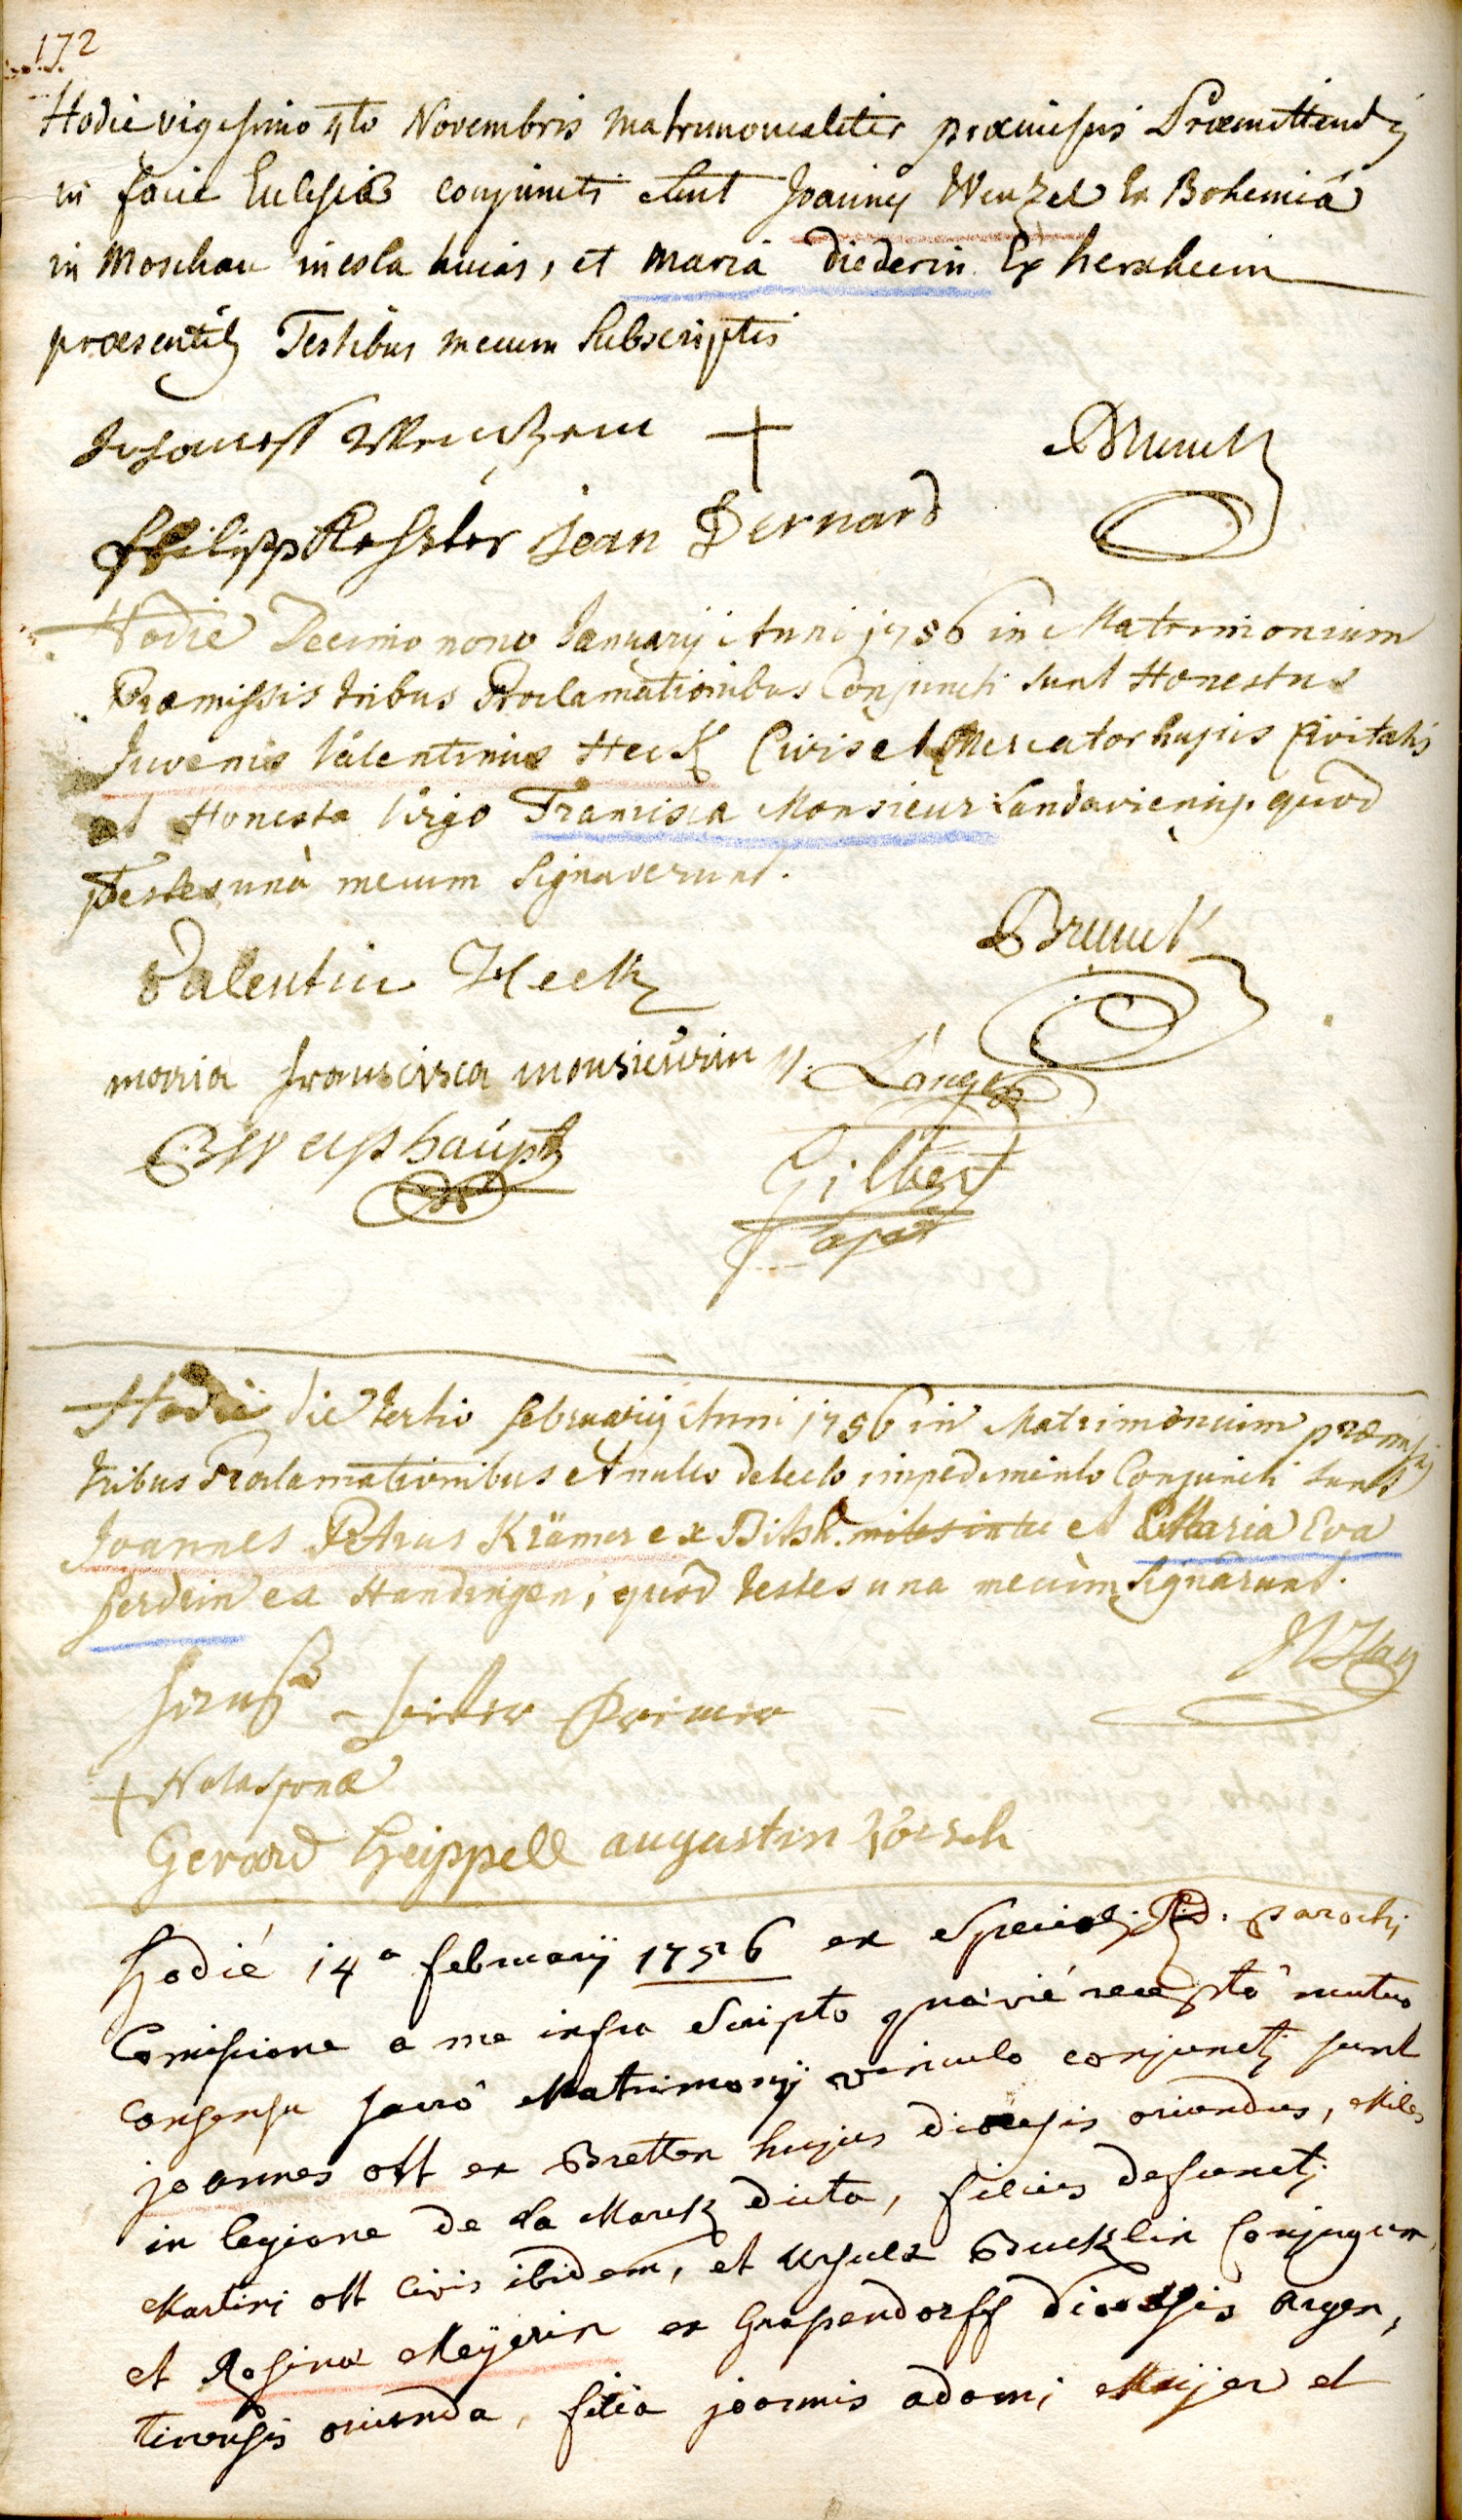 172
Hodie vigesimo 4to Novembris Matrimonialiter præmissis Præmittendis
in facie Eclesiæ conjuncti sunt Joannes Wenzel Ex Bohemia
in Moschau incola huias, et Maria Diederin Ex herxheim
præsentib Testibus mecum Subscriptis
Johannes +
Brunck
Philipp Kessler Jean Bernard
Hodie Decimo nono Januarij Anni 1756 in Matrimonium
Præmissis tribus Proclamationibus Conjuncti sunt Honestus
Juvenis Valentinus Heck Civis et Mercator hujus Civitatis
et Honesta Virgo Francisca Monsieur Landaviensis. quod
Testes unà mecum Signaverunt.
Brunck
Valentin Heck
maria francisca monsieurin Lang
BWeishaupt
Gilbert
Hodie die tertio februarij Anni 1756 in Matrimonium præmissis
tribus Proclamationibus et nullo detecto impedimento Conjuncti sunt
Joannes Petrus Krämer ex Bitsh. et Maria Eva
ferdrin ex Handingen, quod testes una mecum Signarunt.
+ Nota sponsæ
Gerard Heippell augustin
Hodié 14a februarij 1756 ex Speciali Rd. parochi
Comissione a me infra Scripto quavié receptô mutuo
consensu sacrô Matrimonij vinculo conjuncti sunt
joannes ott ex Bretten hujus diœcesis oriundus, Miles
in legione de la Marck dicta, filius defuncti
Martini ott civis ibidem, et Ursula Bucklin Conjugum,
et Rosina Meÿerin ex Grapendorff diœcesis argen,
tinensis oriunda, filia joannis adami Meijer et